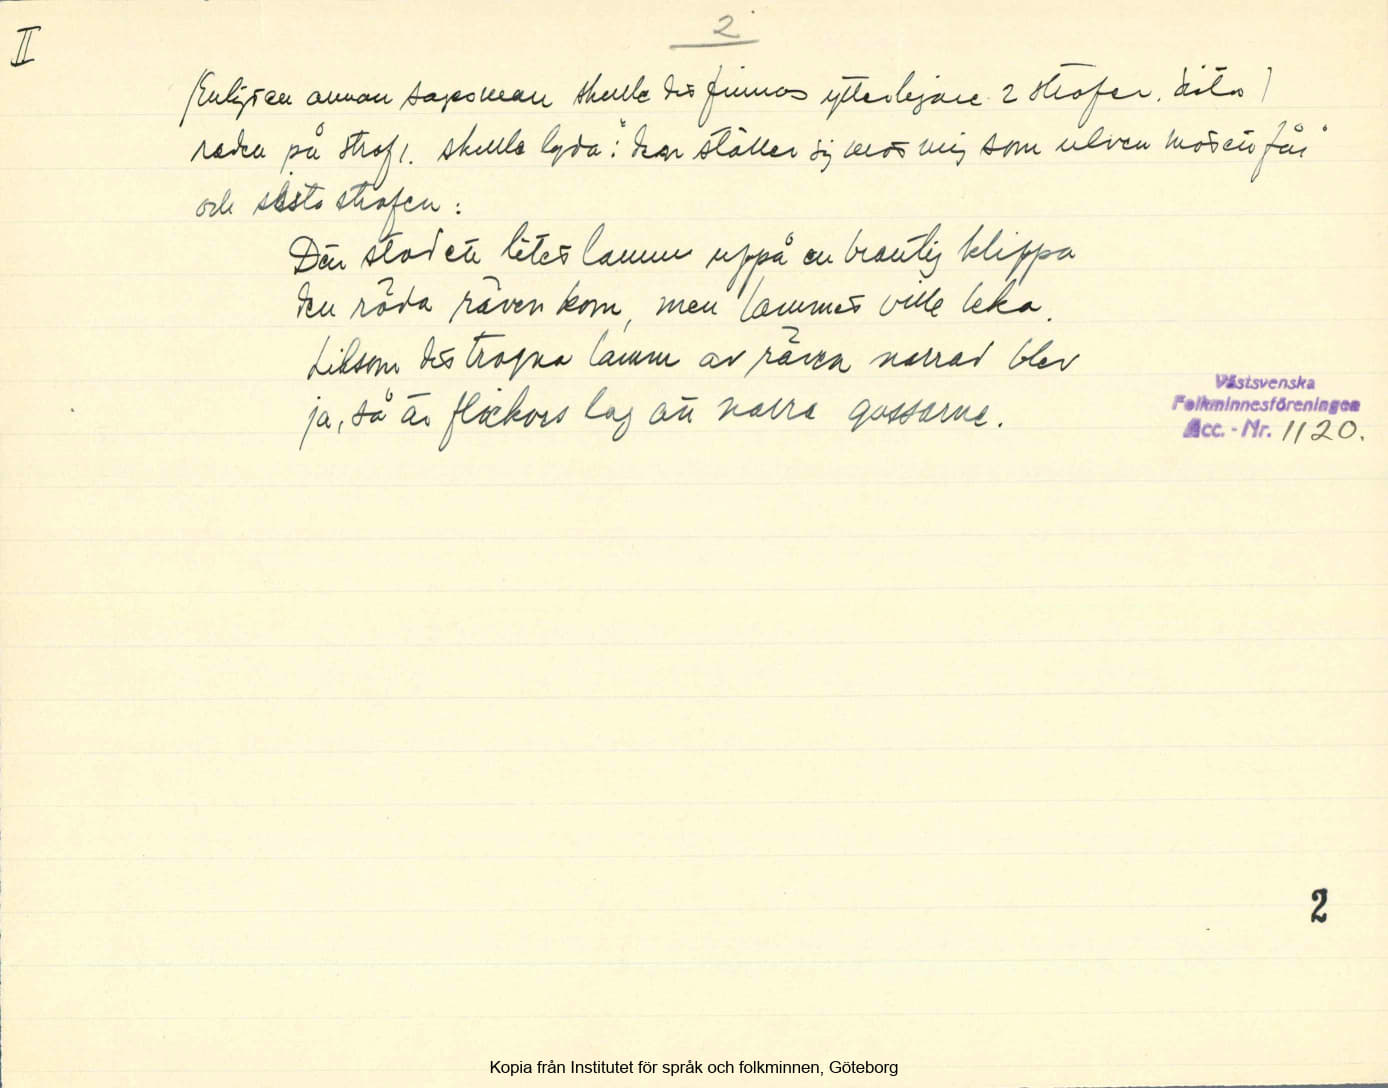 II
2
(Enligt en annan sagesman skulle det finnas ytterligare 2 strofer. Sista)
raden på strof 1. skulle lyda: "den ställer sig mot mig som ulven mot ett får"
och sista strofen:
Där stod ett litet lamm uppå en brantig klippa
den röda räven kom, men lammet ville leka.
Liksom det trogna lamm av räven narrad blev
ja, så är flickors lag att narra gossarne.
Västsvenska
Folkminnesföreningen
Acc. - Nr. 1120.
2
Kopia från Institutet för språk och folkminnen, Göteborg